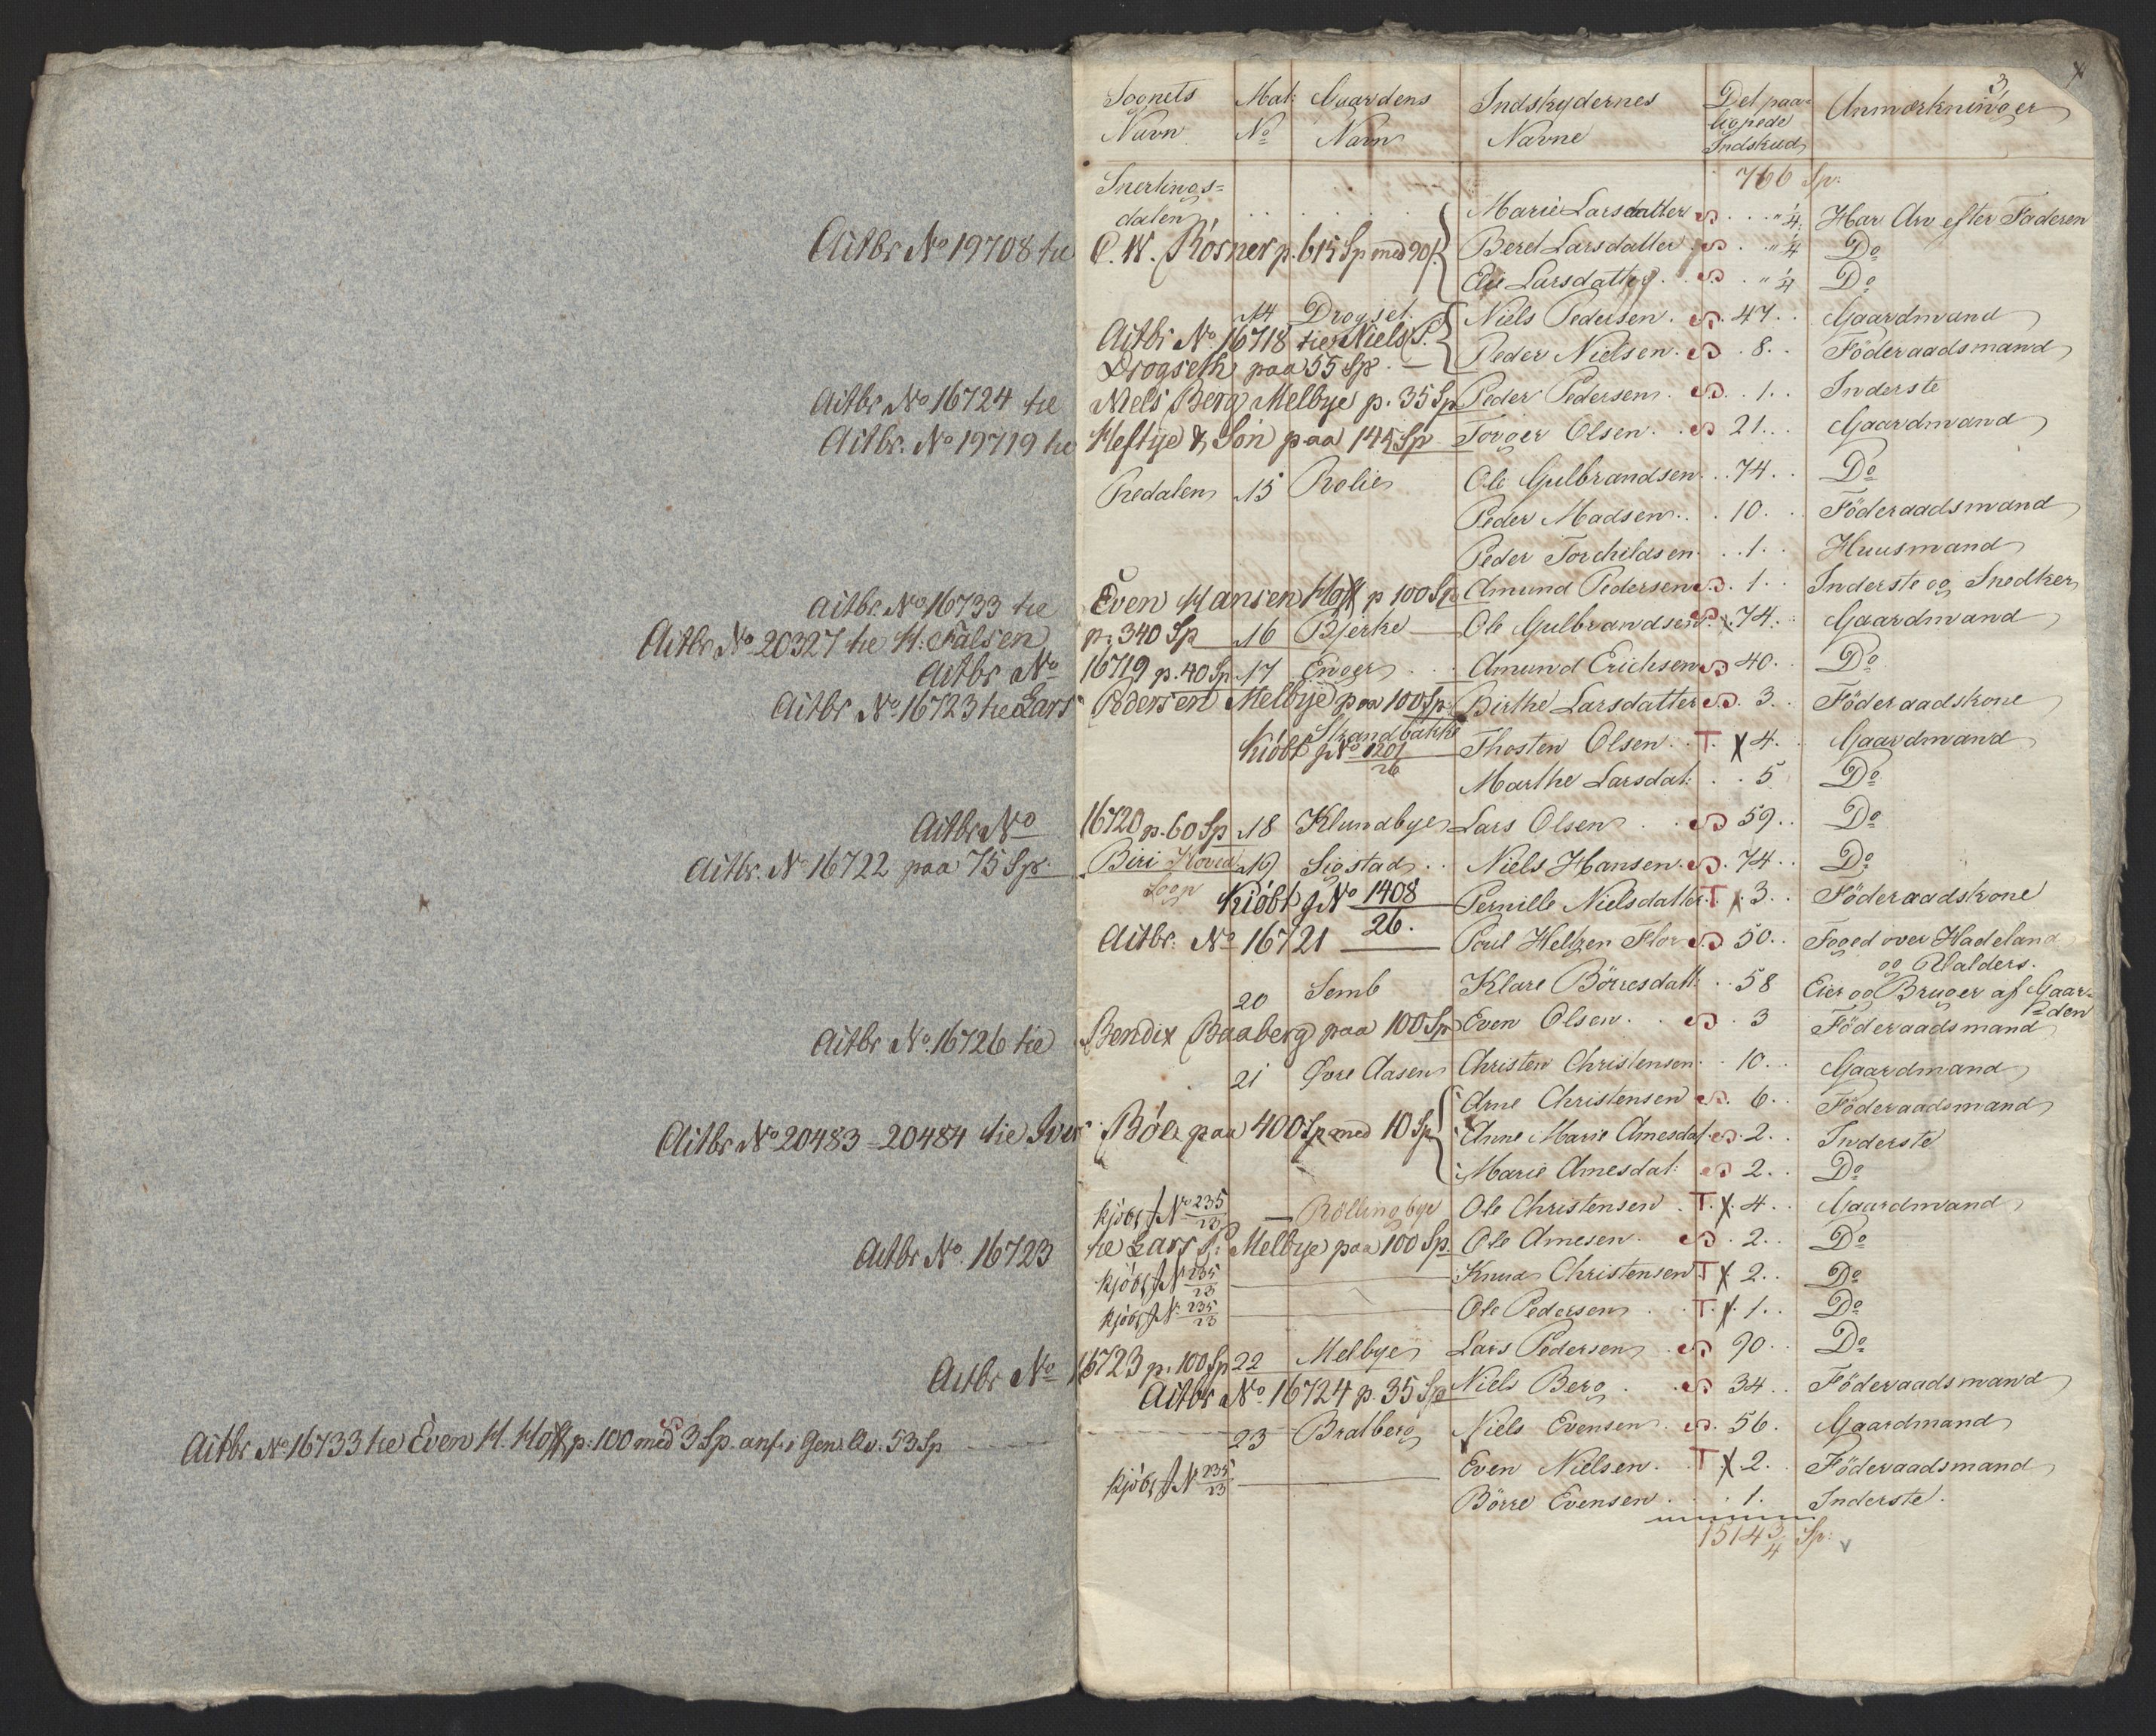 3
Sognets Mat: Gaardens Indskydernes Det paa- Anmærkninger
Navn No Navn Navne lignede
Indskud
766 Sp:
Snertings=
dalen Marie Larsdatter S " 1/4 Har Arv efter Faderen
Aitbr No 19708 til C. W. Rosner p. 615 Sp med 90/ Beret Larsdatter S " 1/4 Do
Else Larsdatter S " 1/4 Do
14 Drogset Niels Pedersen S 47 Gaardmand
Aitbr No 16718 til Niels P.
Drogseth paa 55 Sp Peder Nielsen S 8 Föderaadsmand
Aitbr No 16724 til Niels Berg Melbye p. 35 Sp Peder Pedersen S 1 Inderste
Aitbr. No 19719 til Heftye & Søn paa 145 Sp Torger Olsen S 21 Gaardmand
Redalen 15 Rolie Ole Gulbrandsen 74 Do
Peder Madsen 10 Föderaadsmand
Peder Torchildsen 1 Huusmand
Aitbr No 16733 til Even Hansen Hoff p 100 Sp Amund Pedersen S 1 Inderste og Snedker
Aitbr No 20327 til H. Falsen p. 340 Sp 16 Bjerke Ole Gulbrandsen S 74 Gaardmand
Aitbr No 16719 p. 40 Sp 17 Enger Amund Erichsen S 40 Do
Aitbr No 16723 til Lars Pedersen Melbye paa 100 Sp Birthe Larsdatter S 3 Föderaadskone
Strandbakke
Kiöbt f No 1201/26 Thosten Olsen T X 4 Gaardmand
Marthe Larsdat: 5 Do
Aitbr No 16720 p. 60 Sp 18 Klundbye Lars Olsen S 59 Do
Aitbr. No 16722 paa 75 Sp Biri Hoved 19 Sigstad Niels Hansen S 74 Do
Sogn Kiöbt f No 1408/26 Pernille Nielsdatter T x 3 Föderaadskone
Aitbr: No 16721 Poul Heltzen Flor S 50 Foged over Hadeland
og Valders.
20 Semb Klare Börresdatt: 58 Eier og Bruger af Gaar-
den
Aitbr No 16726 til Bendix Baaberg paa 100 Sp Even Olsen S 3 Föderaadsmand
21 Øvre Aasen Christen Christensen 10 Gaardmand
Arne Christensen S 6 Föderaadsmand
Aitbr No 20483 - 20484 til Iver Böe paa 400 Sp med 10 Sp Anne Marie Arnesdat S 2 Inderste
Marie Arnesdat: S 2 Do
Kjöbt f No 235/23 Röllingbye Ole Christensen T X 4 Gaardmand
Aitbr No 16723 til Lars P: Melbye paa 100 Sp Ole Arnesen S 2 Do
Kjöbt f No 235/23 Knud Christensen T X 2 Do
Kjöbt f No 235/23 Ole Pedersen T X 1 Do
Aitbr No 16723 p. 100 Sp 22 Melbye Lars Pedersen S 90 Do
Aitbr No 16724 p. 35 Sp Niels Berg S 34 Föderaadsmand
Aitbr No 16733 til Even H. Hoff p. 100 med 3 Sp. anf. i Gen: Qv. 53 Sp 23 Bratberg Niels Evensen S 56 Gaardmand
Kjöbt f No 235/23 Even Nielsen T X 2 Föderaadsmand
Börre Evensen 1 Inderste
1514 3/4 Sp: